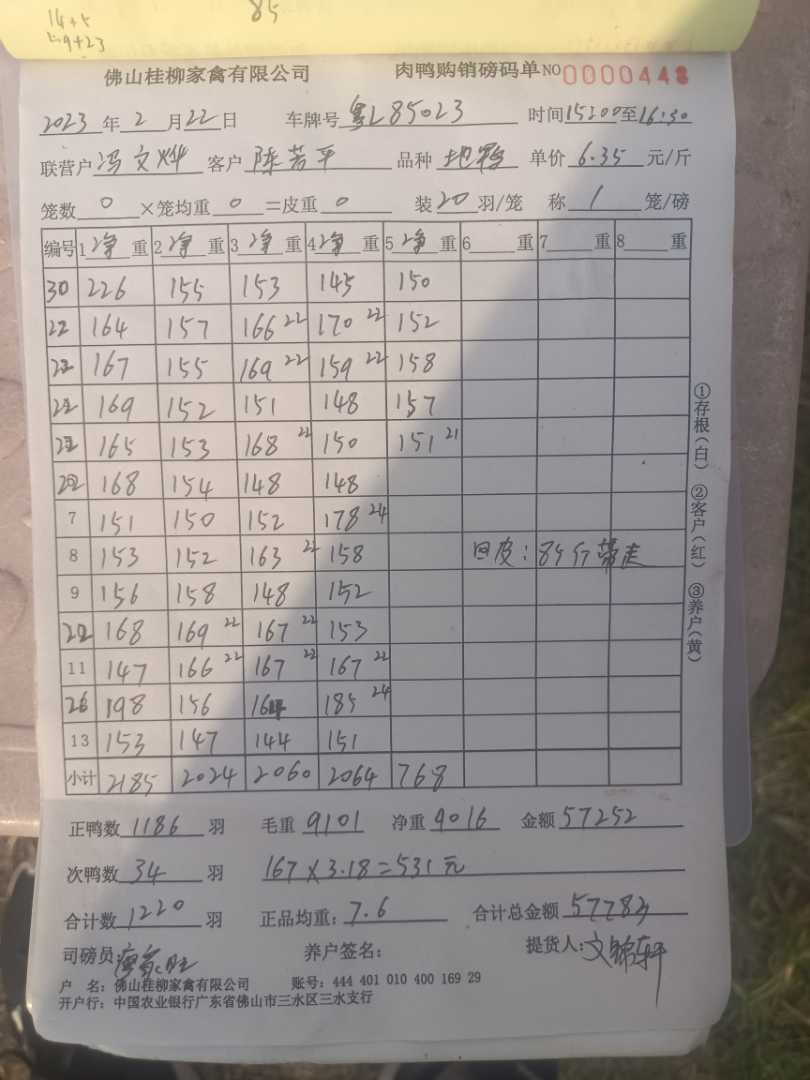 14+5
85
9+23
佛山桂柳家禽有限公司 肉鸭购销磅码单 NO 0000448
2023年2月22日 车牌号 粤L85023 时间15:00至16:30
联营户 冯文烨 客户 陈芳平 品种 地鸭 单价 6.35 元/斤
笼数 0 ×笼均重 0 =皮重 0 装20羽/笼 称 1 笼/磅
编号 1净重 2净重 3净重 4净重 5净重 6 重 7 重 8 重
30 226 155 153 145 150
22 164 157 166 22 170 22 152
22 167 155 169 22 159 22 158
22 169 152 151 148 157
22 165 153 168 22 150 151 21
22 168 154 148 148
7 151 150 152 178 24
8 153 152 163 22 158 回皮:85斤带走
9 156 158 148 152
22 168 169 22 167 22 153
11 147 166 22 167 22 167 22
26 198 156 164 185 24
13 153 147 144 151
小计 2185 2024 2060 2064 768
①存根(白) ②客户(红) ③养户(黄)
正鸭数 1186 羽 毛重 9101 净重 9016 金额 57252
次鸭数 34 羽 167×3.18=531元
合计数 1220 羽 正品均重: 7.6 合计总金额 57783
司磅员 养户签名: 提货人: 文锦轩
户 名: 佛山桂柳家禽有限公司 账号: 444 401 010 400 169 29
开户行: 中国农业银行广东省佛山市三水区三水支行